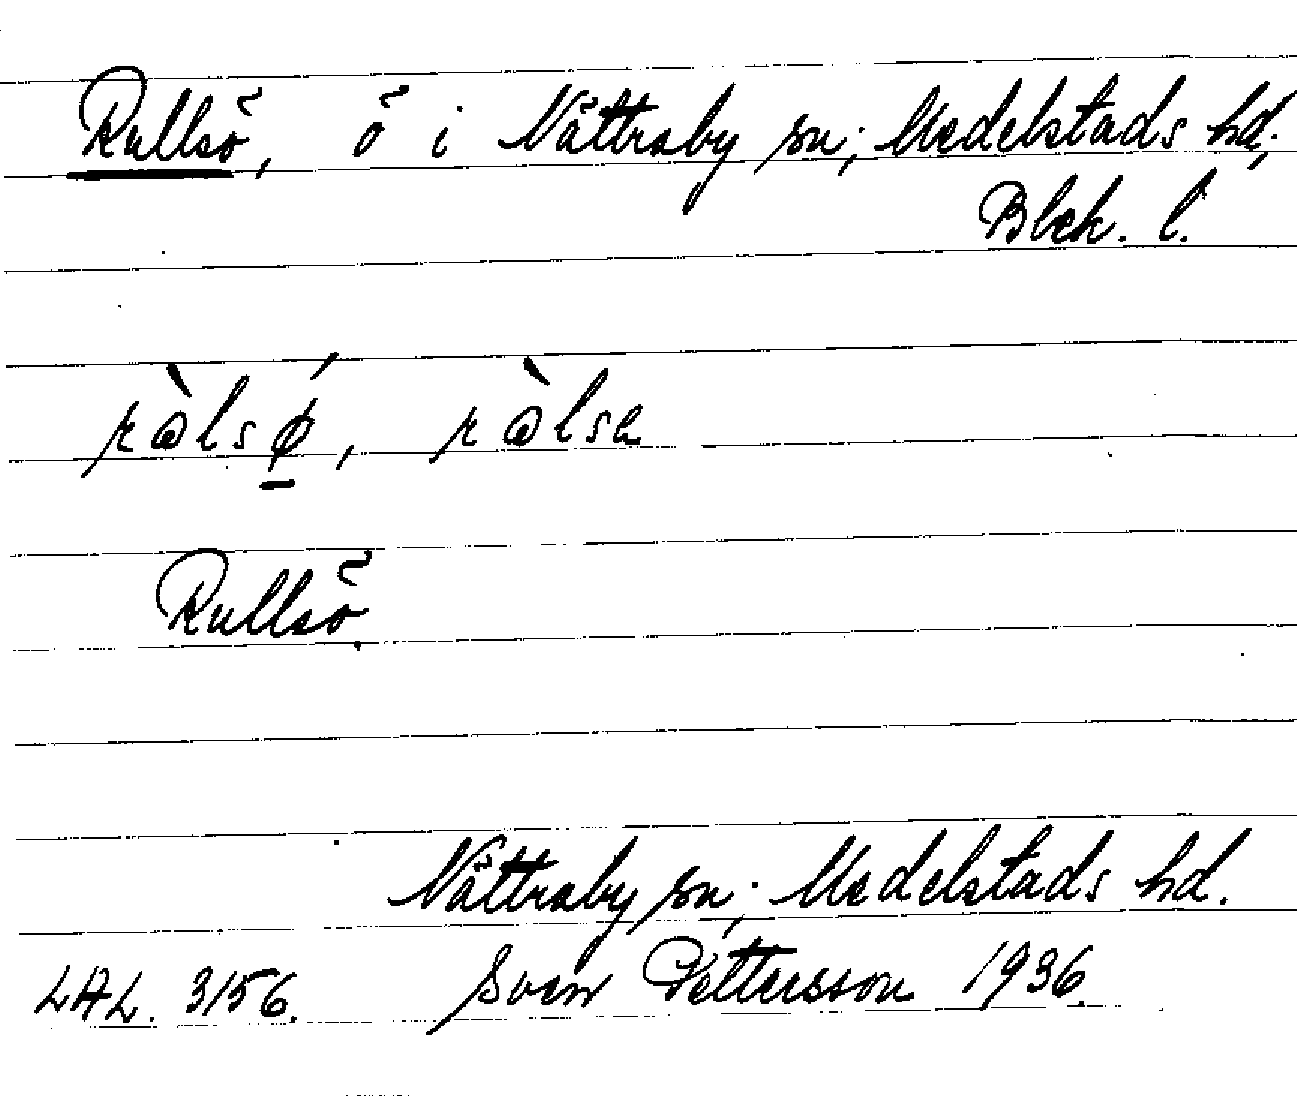 Rullsö, ö i Nättraby sn; Medelstads hd;
Blek. l.
ràlsǿ, ràlsn
Rullsö
Nättraby sn; Medelstads hd.
LAL. 3156. Sven Pettersson 1936.